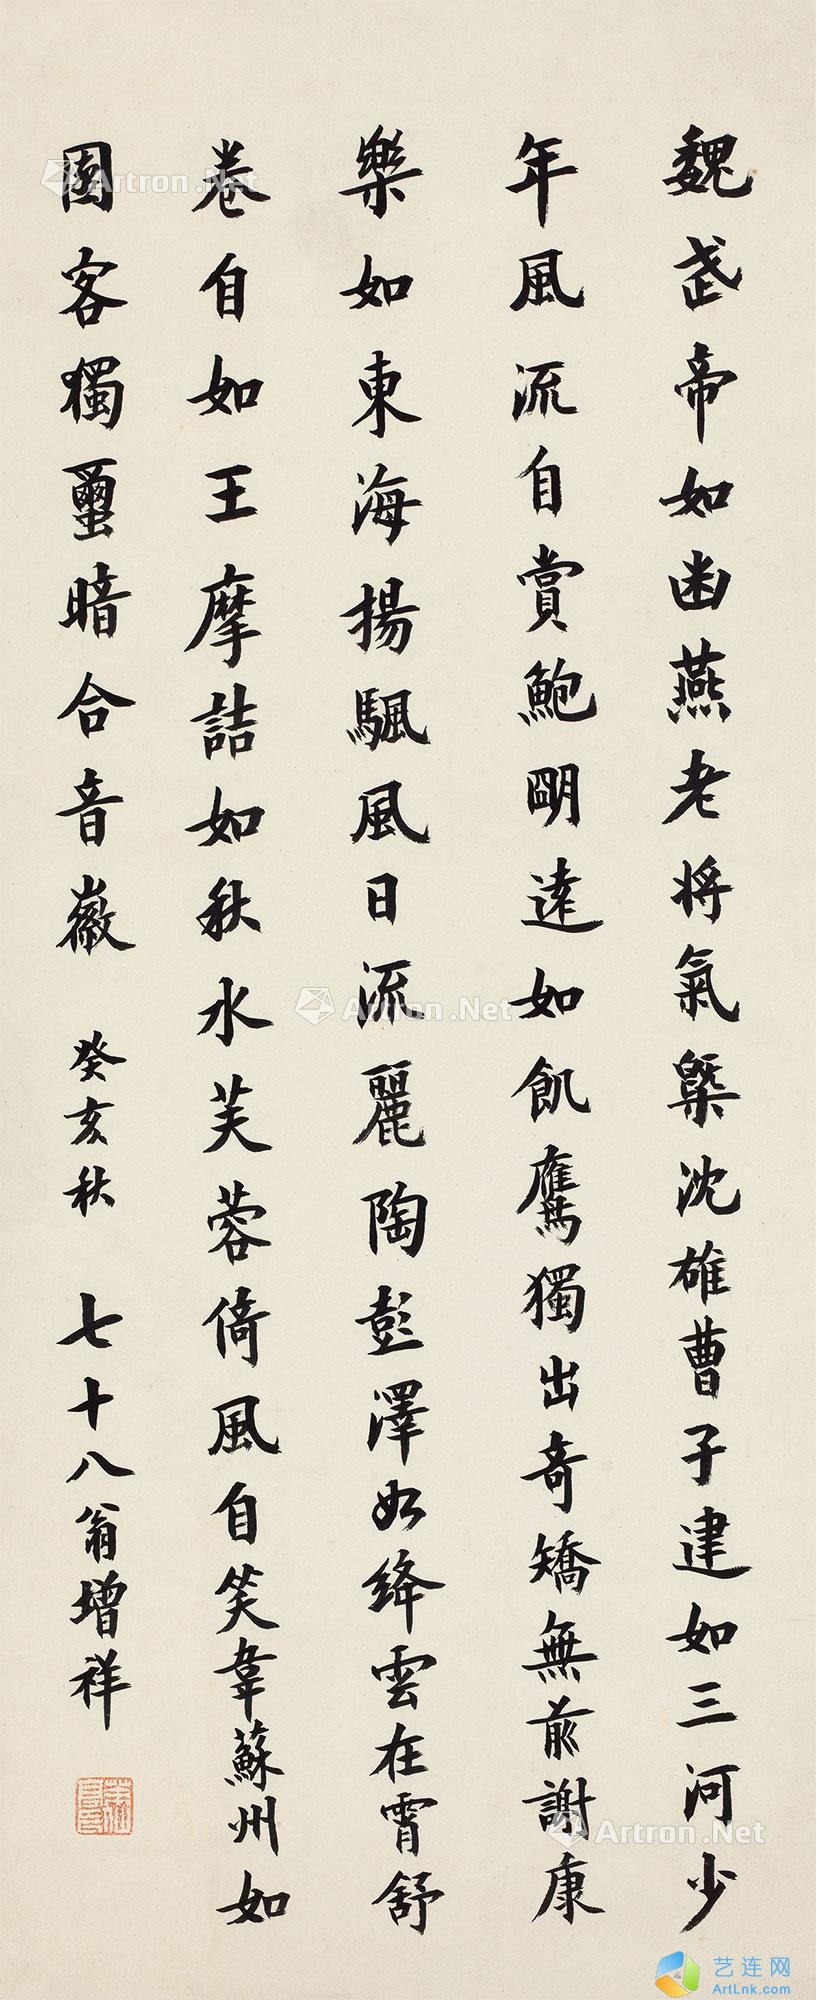 魏武帝如幽燕老將氣槩沈雄曹子建如三河少
年風流自賞鮑明遠如飢鷹獨出奇矯無前謝康
樂如東海揚颿風日流麗陶彭澤如絳雲在霄舒
卷自如王摩詰如秋水芙蓉倚風自笑韋蘇州如
園客獨璽暗合音徽 癸亥秋 七十八翁增祥
Artron.Net
Artron.Net
Artron.Net
Artron.Net
艺连网
ArtLnk.com